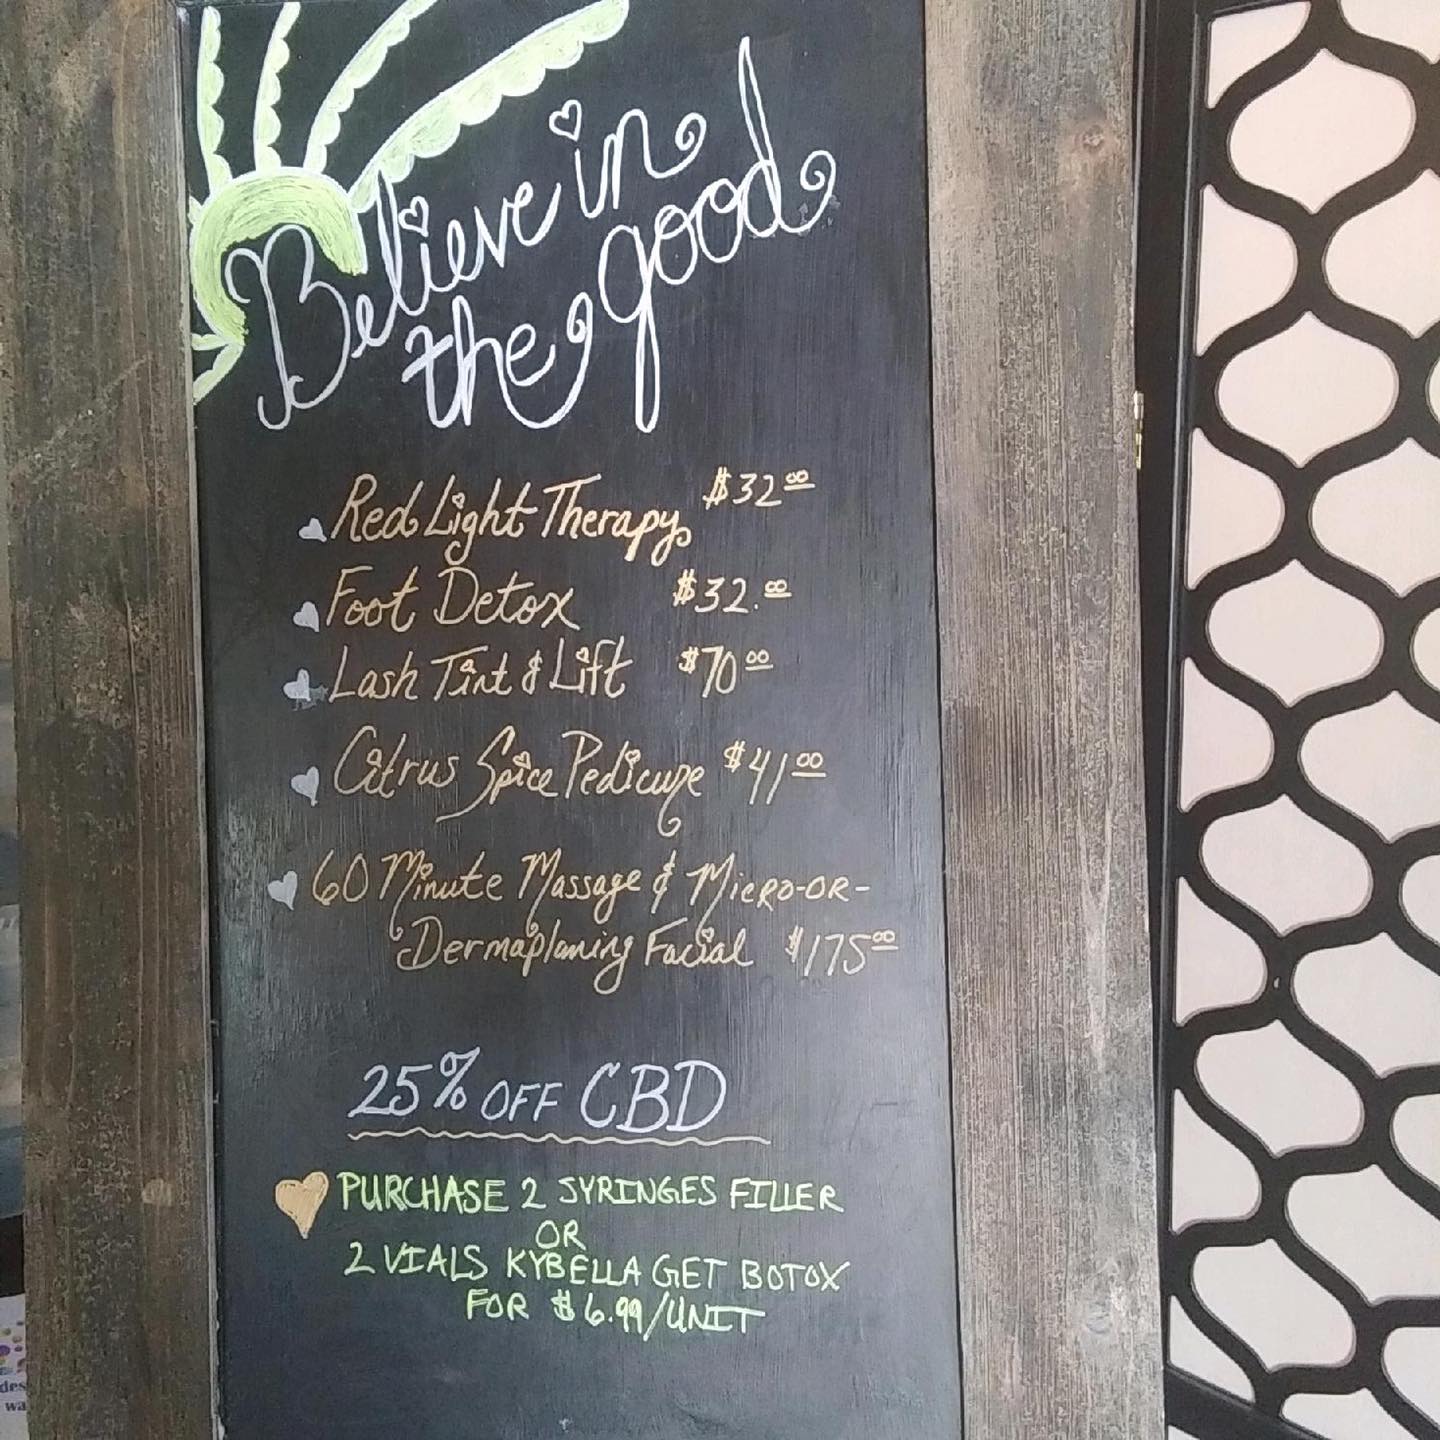 Believe in
the good
Red Light Therapy $32.00
Foot Detox $32.00
Lash Tint & Lift $70.00
Citrus Spice Pedicure $41.00
60 Minute Massage & Micro-or-
Dermaplaning Facial $175.00
25% OFF CBD
PURCHASE 2 SYRINGES FILLER
OR
2 VIALS KYBELLA GET BOTOX
FOR $6.99/UNIT